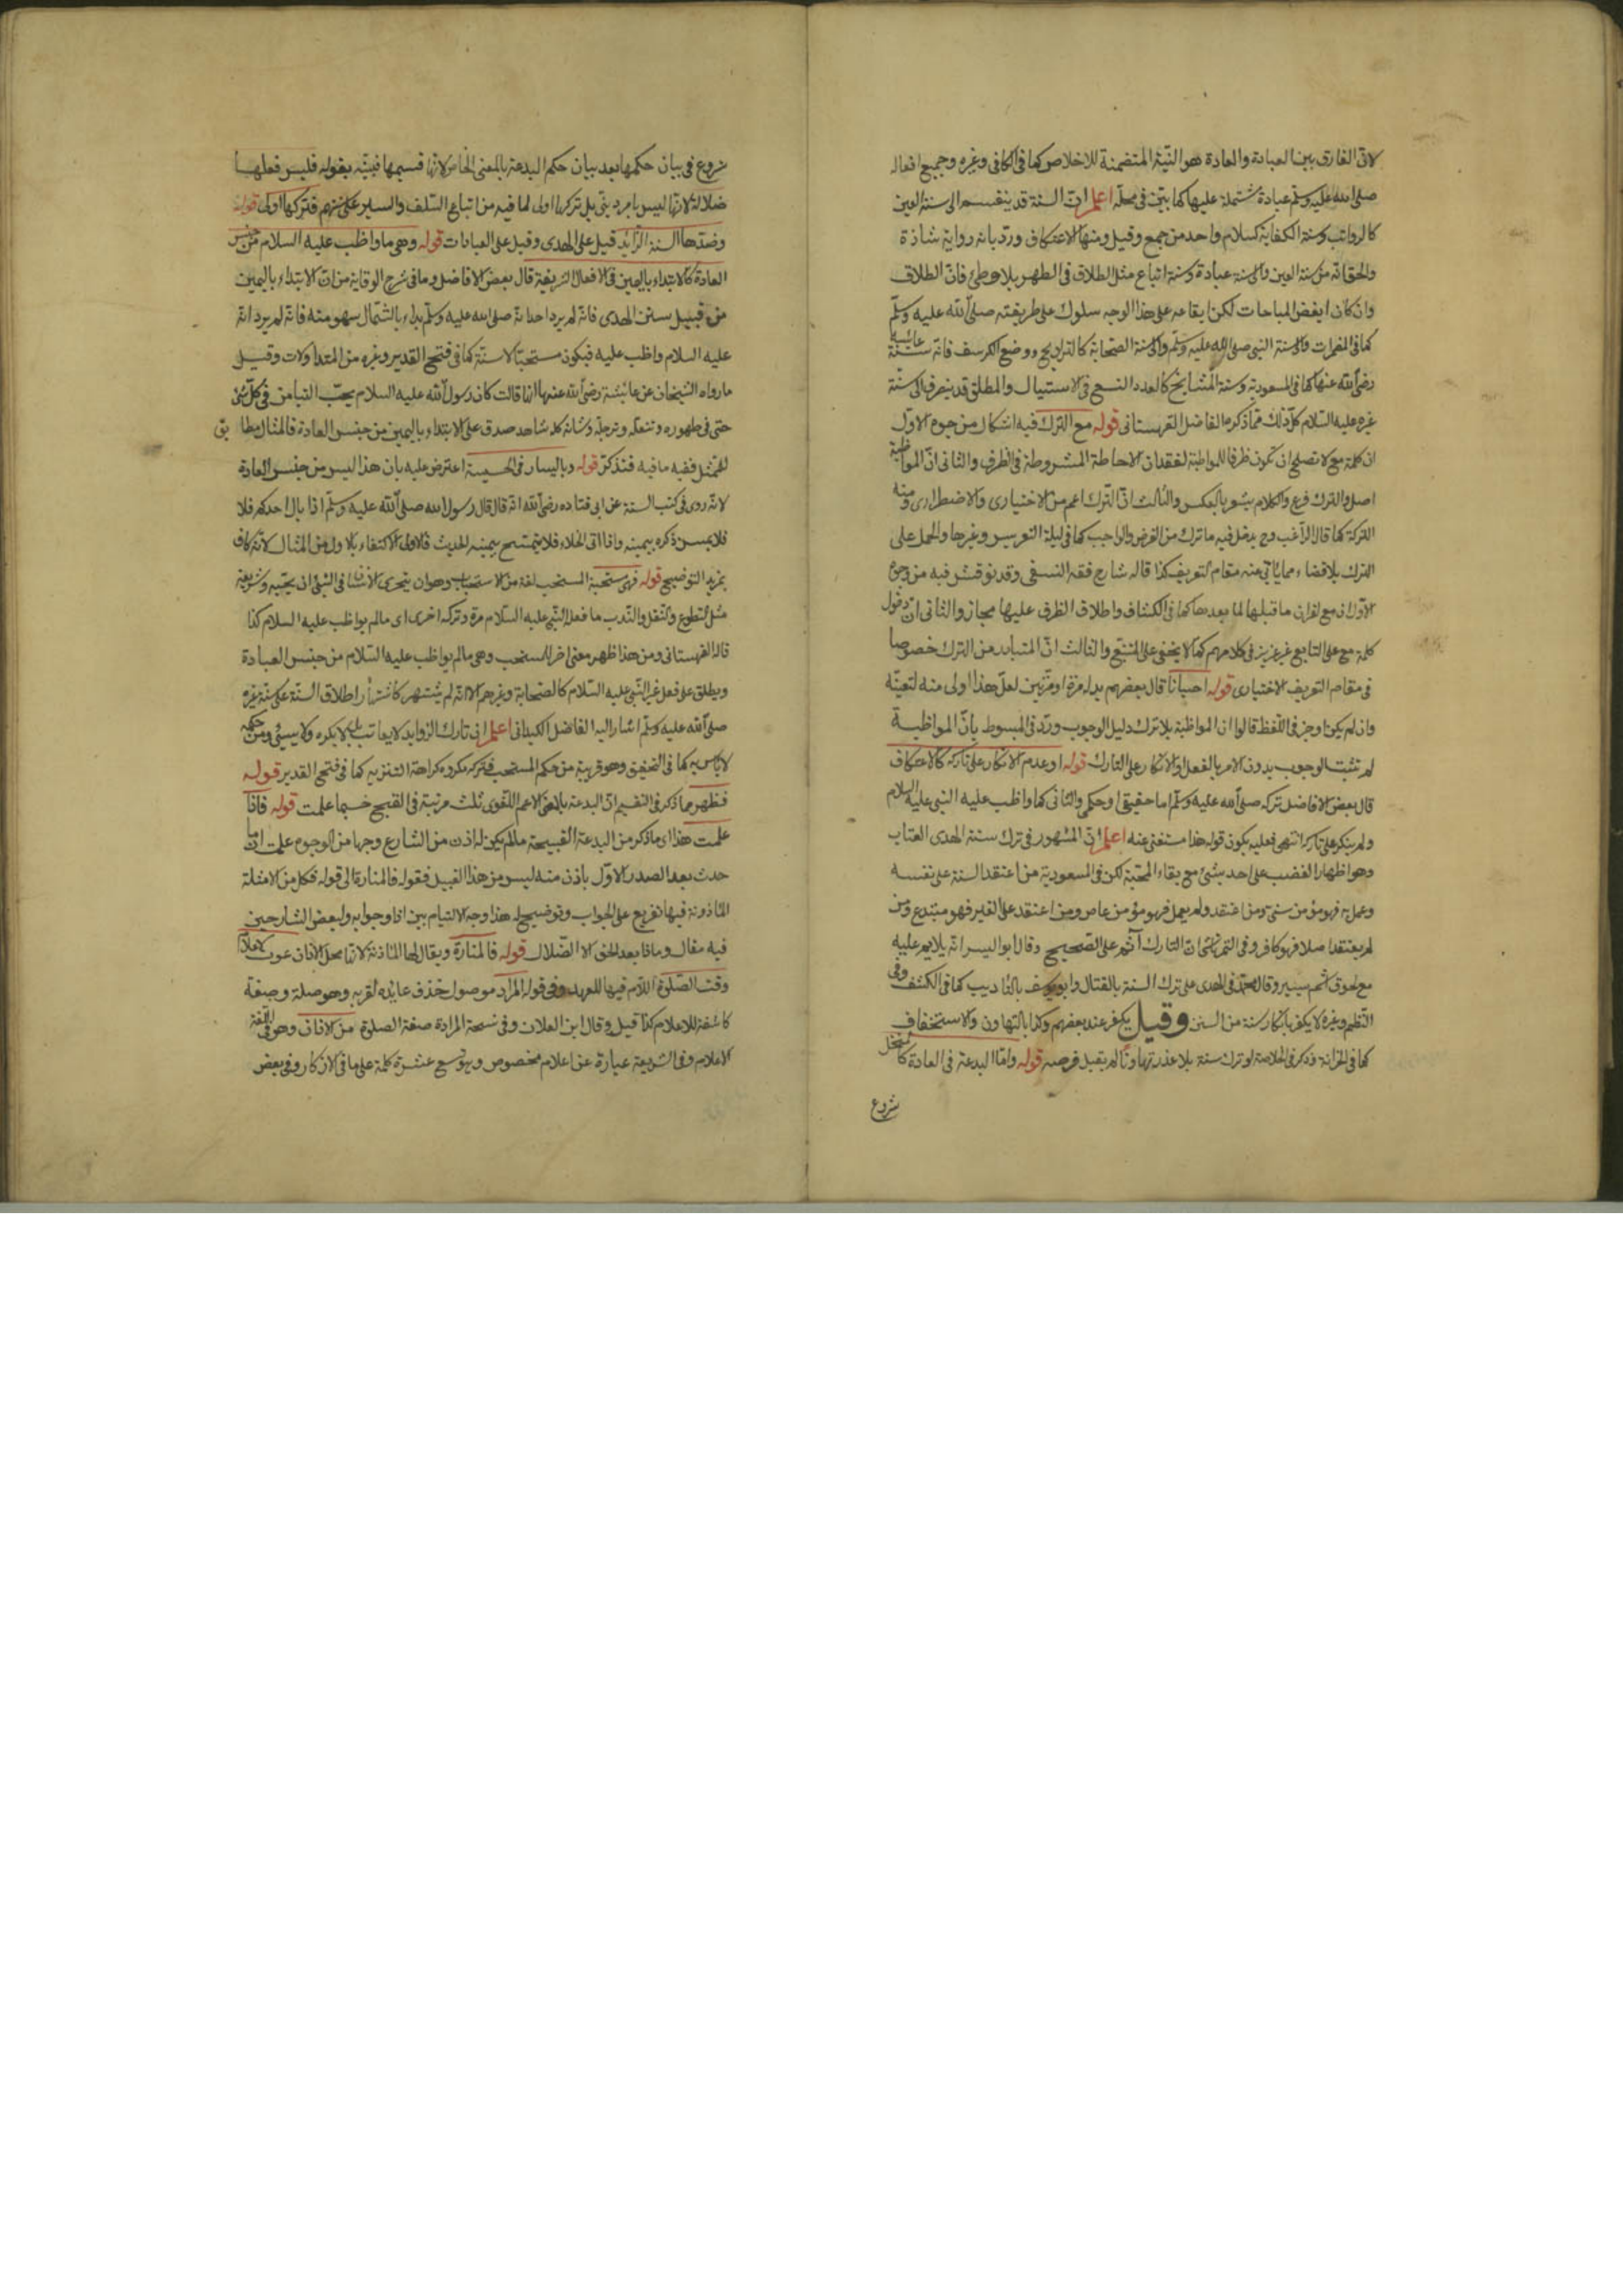 لان الفارق بين العبادة والعادة هو النية المتضمنة للاخلاص كما فى الكافى وغيره وجميع افعاله
صلى الله عليه وسلم عبادة مشتملة عليها كما بين فى محله اعلم ان السنة قد ينقسم الى سنة العين
كالرواتب وسنة الكفاية كسلام واحد من جمع وقيل ومنها الاعتكاف ورد بانه رواية شاذة
والحق انه من سنة العين والى سنة عبادة وسنة اتباع مثل الطلاق فى الطهر بلا وطئ فان الطلاق
وان كان ابغض المباحات لكن ايقاعه على هذا الوجه سلوك على طريقته صلى الله عليه وسلم
كما فى المضمرات والى سنة النبى صلى الله عليه وسلم والى سنة الصحابة كالتراويح ووضع الكرسف فانه سنة عائشة
رضى الله عنها كما فى المسعودية وسنة المشايخ كالعدد التسع فى الاستياك والمطلق قد ينصرف الى سنة
غيره عليه السلام كل ذلك مما ذكره الفاضل القهستانى قوله مع الترك فيه اشكال من وجوه الاول
ان كلمة مع لا تصلح ان تكون ظرفا للمواظبة لفقدان الاحاطة المشروطة فى الظرف والثانى ان المواظبة
اصل والترك فرع والكلام يشعر بالعكس والثالث ان الترك اعم من الاختيارى والاضطرارى ومنه
التركة كما قال الراغب وح يدخل فيه ما ترك من الفرض والواجب كما فى ليلة التعريس وغيرها والحمل على
الترك بلا قضاء مما يأبى عنه مقام التعريف كذا قاله شارح فقه النسفى وقد نوقش فيه من وجوه
الاول ان مع لقران ما قبلها لما بعدها كما فى الكشاف واطلاق الظرف عليها مجاز والثانى ان دخول
كلمة مع على التابع غير عزيز فى كلامهم كما لا يخفى على المتتبع والثالث ان المتبادر من الترك خصوصا
فى مقام التعريف الاختيارى قوله احيانا قال بعضهم بدله مرة او مرتين لعل هذا اولى منه لتعينه
وان لم يكن اوجز فى اللفظ قالوا ان المواظبة بلا ترك دليل الوجوب ورد فى المبسوط بان المواظبة
لم تثبت الوجوب بدون الامر بالفعل او الانكار على التارك قوله او عدم الانكار على تاركه كالاعتكاف
قال بعض الافاضل تركه صلى الله عليه وسلم اما حقيقى او حكمى والثانى كما واظب عليه النبى عليه السلام
ولم ينكر على تاركه انتهى فعليه يكون قوله هذا مستغنى عنه اعلم ان المشهور فى ترك سنة الهدى العتاب
وهو اظهار الغضب على احد بشئ مع بقاء المحبة لكن فى المسعودية من اعتقد السنة على نفسه
وعمل به فهو مؤمن سنى ومن اعتقد ولم يعمل فهو مؤمن عاص ومن اعتقد على الغير فهو مبتدع ومن
لم يعتقد اصلا فهو كافر وفى التمرتاشى ان التارك آثم على الصحيح وقال ابو اليسر انه يلام عليه
مع لحوق اثم يسير وقال محمد فى الهدى على ترك السنة بالقتال وابو يوسف بالتأديب كما فى الكشف وفى
النظم وغيره لا يكفر بانكار سنة من السنن وقيل يكفر عند بعضهم وكذا بالتهاون والاستخفاف
كما فى الخزانة وذكر فى الخلاصة لو ترك سنة بلا عذر تهاونا لم يقبل فرضه قوله واما البدعة فى العادة كالمنخل
شروع
شروع فى بيان حكمها بعد بيان حكم البدعة بالمعنى الخاص لانها قسيمها فبينه بقوله فليس فعلها
ضلالة لانها ليس بامر دينى بل تركها اولى لما فيه من اتباع السلف والسير على سنتهم فتركها اولى قوله
وضدها السنة الزائد قيل على الهدى وقيل على العبادات قوله وهى ما واظب عليه السلام من جنس
العادة كالابتداء باليمين فى الافعال الشريفة قال بعض الافاضل وما فى شرح الوقاية من ان الابتداء باليمين
من قبيل سنن الهدى فانه لم يرد احد انه صلى الله عليه وسلم بداء بالشمال سهو منه فانه لم يرد انه
عليه السلام واظب عليه فيكون مستحبا لا سنة كما فى فتح القدير وغيره من المتداولات وقيل
ما رواه الشيخان عن عائشة رضى الله عنها انها قالت كان رسول الله عليه السلام يحب التيامن فى كل شئ
حتى فى طهوره وتنعله وترجله وشانه كله شاهد صدق على الابتداء باليمين من جنس العادة فالمثال مطابق
للممثل ففيه ما فيه فتذكر قوله وباليسار فى الخسيسة اعترض عليه بان هذا ليس من جنس العادة
لانه روى فى كتب السنة عن ابى قتاده رضى الله انه قال قال رسول الله صلى الله عليه وسلم اذا بال احدكم فلا
فلا يمس ذكره بيمينه واذا اتى الخلاء فلا يتمسح بيمينه الحديث فالاولى الاكتفاء بالاول من المثال لانه كاف
بمزيد التوضيح قوله فهى مستحبة المستحب لغة من الاستحباب وهو ان يتحرى الانسان فى الشئ ان يحبه وشريعة
مثل التطوع والنفل والندب ما فعل النبى عليه السلام مرة وتركه اخرى اى ما لم يواظب عليه السلام كذا
قاله القهستانى ومن هذا ظهر معنى اخر للمستحب وهى ما لم يواظب عليه السلام من جنس العبادة
ويطلق على فعل غير النبى عليه السلام كالصحابة وغيرهم الا انه لم يشتهر كاشتهار اطلاق السنة على سنة غيره
صلى الله عليه وسلم اشار اليه الفاضل الكيدانى اعلم ان تارك الزوايد لا يعاتب بل لا يكره ولا يسيئ ومن حكمه
لا بأس به كما فى التحقيق وهو قريبة من حكم المستحب فتركه مكروه كراهة التنزيه كما فى فتح القدير قوله
فظهر مما ذكر فى التقسيم ان البدعة بالمعنى الاعم اللغوى ثلث مرتبة فى القبح حسبما علمت قوله فاذا
علمت هذا اى ما ذكر من البدعة القبيحة ما لم يكن له اذن من الشارع وجها من الوجوه علمت ان ما
حدث بعد الصدر الاول باذن منه ليس من هذا القبيل فقوله فالمنارة الى قوله فكل من الامثلة
المأذونة فيها تفريع على الجواب وتوضيح له هذا وجه الالتيام بين اذا وجوابه ولبعض الشارحين
فيه مقال وماذا بعد الحق الا الضلال قوله فالمنارة ويقال لها المئاذنة لانها محل الاذان عون لاعلام
وقت الصلوة اللام فيها للعهد وفى قوله المراد موصول حذف عايده لقربه وهو صلة وصفة
كاشفة للاعلام كذا قيل وقال ابن العلان وفى نسخة المرادة صفة الصلوة من الاذان وهو فى اللغة
الاعلام وفى الشريعة عبارة عن اعلام مخصوص وهو تسع عشرة كلمة على ما فى الاذكار وفى بعض